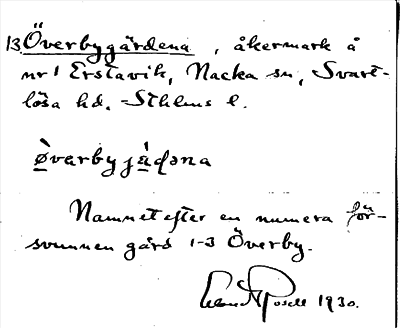 13 Överbygärdena, åkermark å
nr 1 Erstavik, Nacka sn, Svart-
lösa hd. Sthlms l.
ø̀verbyjà̤ḍəna
Namnet efter en numera för-
svunnen gård 1-3 Överby.
1930.